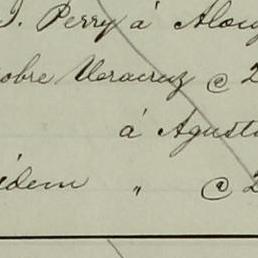 J. Perry á Alon
obre Veracruz @ 2
á Agust
idem " @ 2